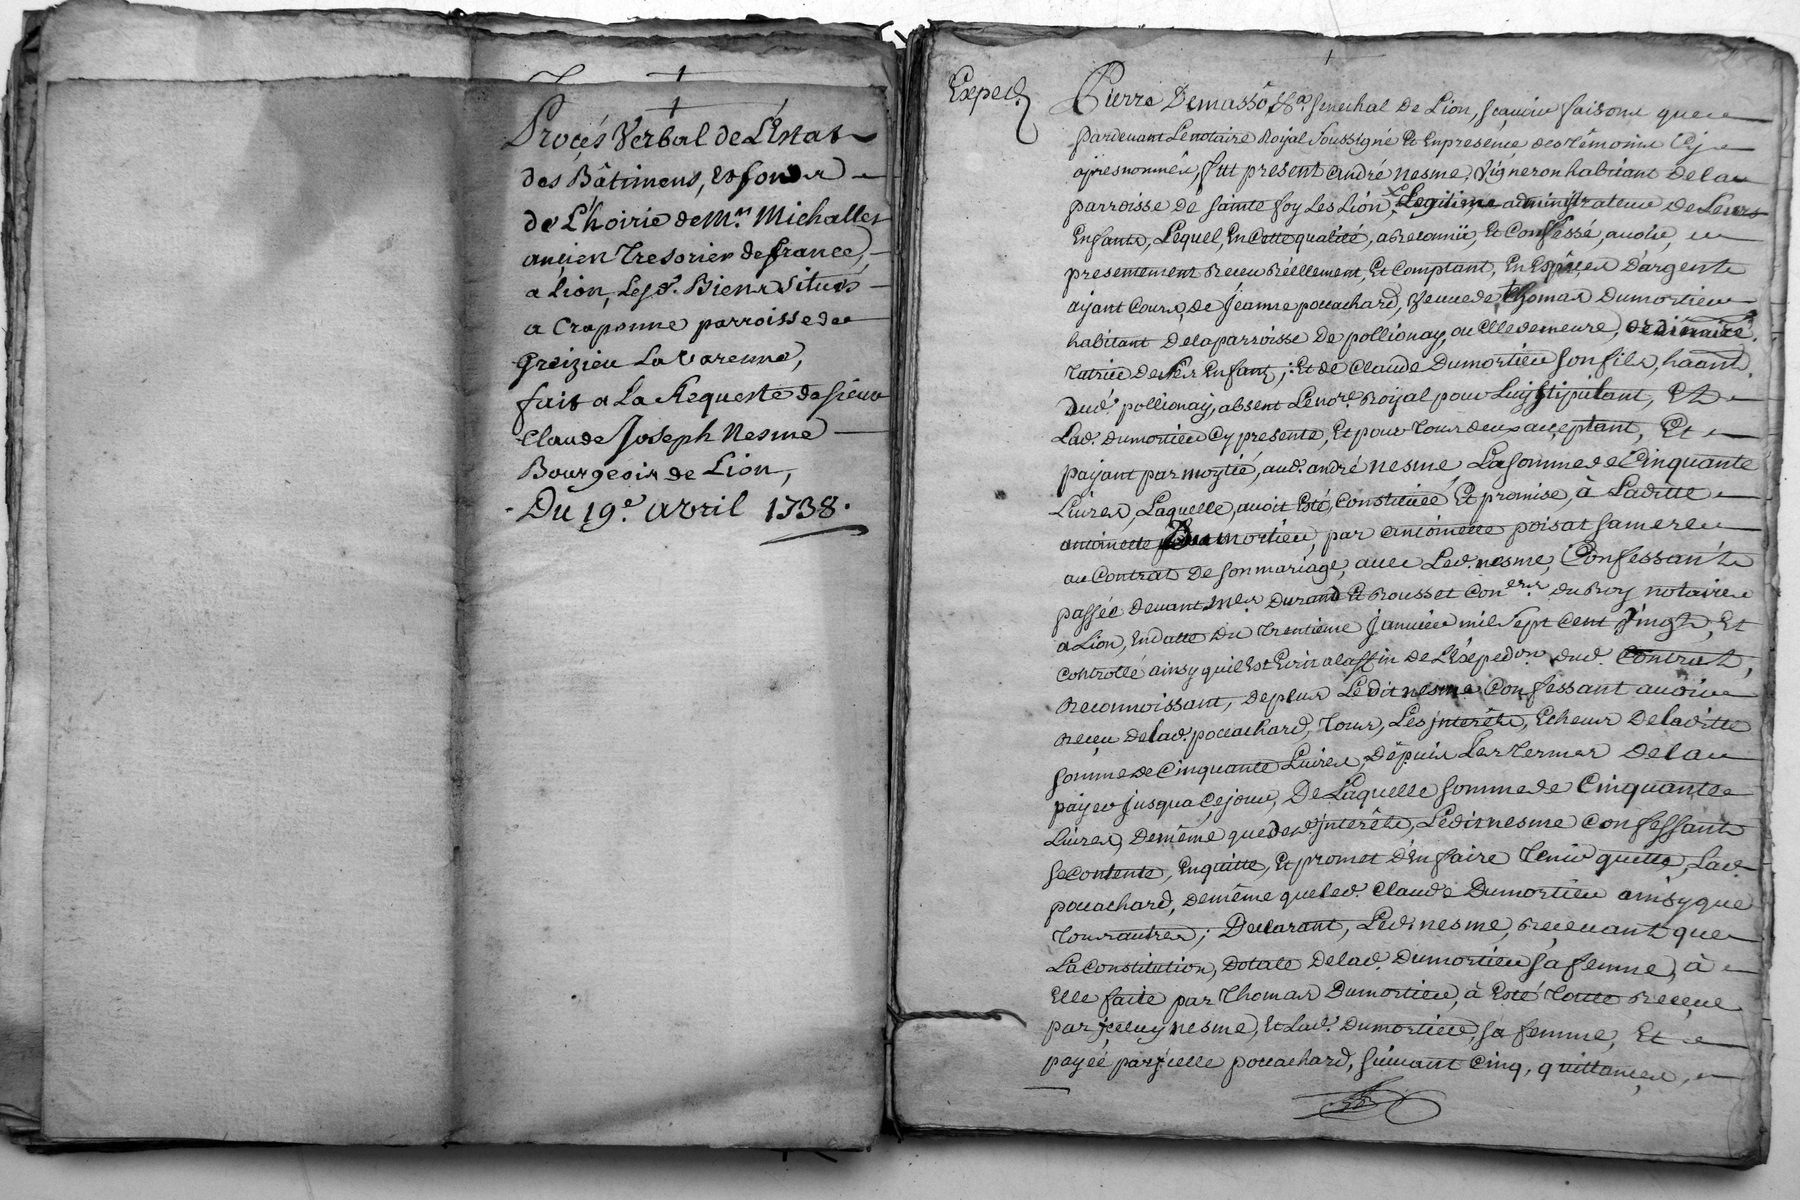 Procés Verbal de L'Estat
des Bâtimens, et fonds
de L'hoirie de Mr. Michallet
ancien Tresorier de france,
a Lion, Lesd. Biens situés
a Craponne parroisse de
Greizieu La Varenne,
fait a La Requeste de sieur
Claude Joseph Nesme
Bourgeois de Lion,
Du 19e. avril 1738.
Exped.
Pierre Demasso senechal de Lion, sçavoir faisons que
pardevant Le notaire Royal soussigné Et En presence des témoins Cy
apres nommés, fut present andré nesme, Vigneron habitant de la
parroisse de sainte foy Les Lion, Legitime administrateur de Leurs
Enfants, Lequel En Cette qualité, a Reconnû, Et Confessé, avoir,
presentement Receu Réellement, Et Comptant, En Espèces d'argent
ayant Cours, de Jeanne pouachard, Veuve de thomas Dumortier
habitant de la parroisse de pollionay, ou Elle demeure,
tutrice de ses Enfants; Et de Claude Dumortier son fils, habt.
dud. pollionay, absent Le nore. Royal pour Luy stipulant, Et
Lad. Dumortier Cy presente, Et pour tous deux acceptant, Et
payant par moytié, aud. andré nesme La somme de Cinquante
Livres, Laquelle, avoit Esté, Constituée Et promise, à Laditte
antoinette Dumortier, par antoinette poisat sa mere
au Contrat de son mariage, avec Led. nesme, Confessant
passée devant Mes. Durand Et Rousset Coners. du Roy notaires
a Lion, En datte du trentieme Janvier mil sept Cent Vingt, Et
Controllé ainsy quil Est Ecrit a la fin de L'Expedon. dud. Contrat,
Reconnoissant, de plus Ledit nesme Confessant avoir
Reçeu de lad. pouachard, tous, Les jnterêts, Echeus de laditte
somme de Cinquante Livres, Dépuis Les termes de la
payer jusqua Ce jour, De Laquelle somme de Cinquante
Livres, de même que des jnterêts, Ledit nesme Confessant
se Contente, En quitte, Et promet d'En faire tenir quitte, Lad.
pouachard, de même que led. Claude Dumortier ainsy que
tous autres; Declarant, Led. nesme, Reçevant que
La Constitution, Dotale de lad. Dumortier sa femme, à
Elle faite par Thomas Dumortier, à Esté toutte Reçeue
par jceluy nesme, Et Lad. Dumortier, sa femme, Et
payéé par jcelle pouachard, suivant Cinq, quittances,